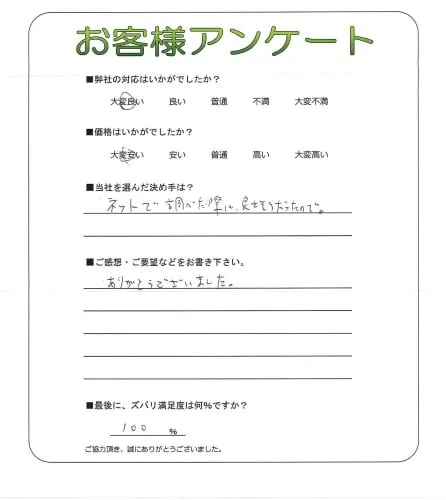 お客様アンケート
■弊社の対応はいかがでしたか？
大変良い 良い 普通 不満 大変不満
■価格はいかがでしたか？
大変安い 安い 普通 高い 大変高い
■当社を選んだ決め手は？
ネットで調べた際に、良さそうだったので。
■ご感想・ご要望などをお書き下さい。
ありがとうございました。
■最後に、ズバリ満足度は何％ですか？
100 ％
ご協力頂き、誠にありがとうございました。